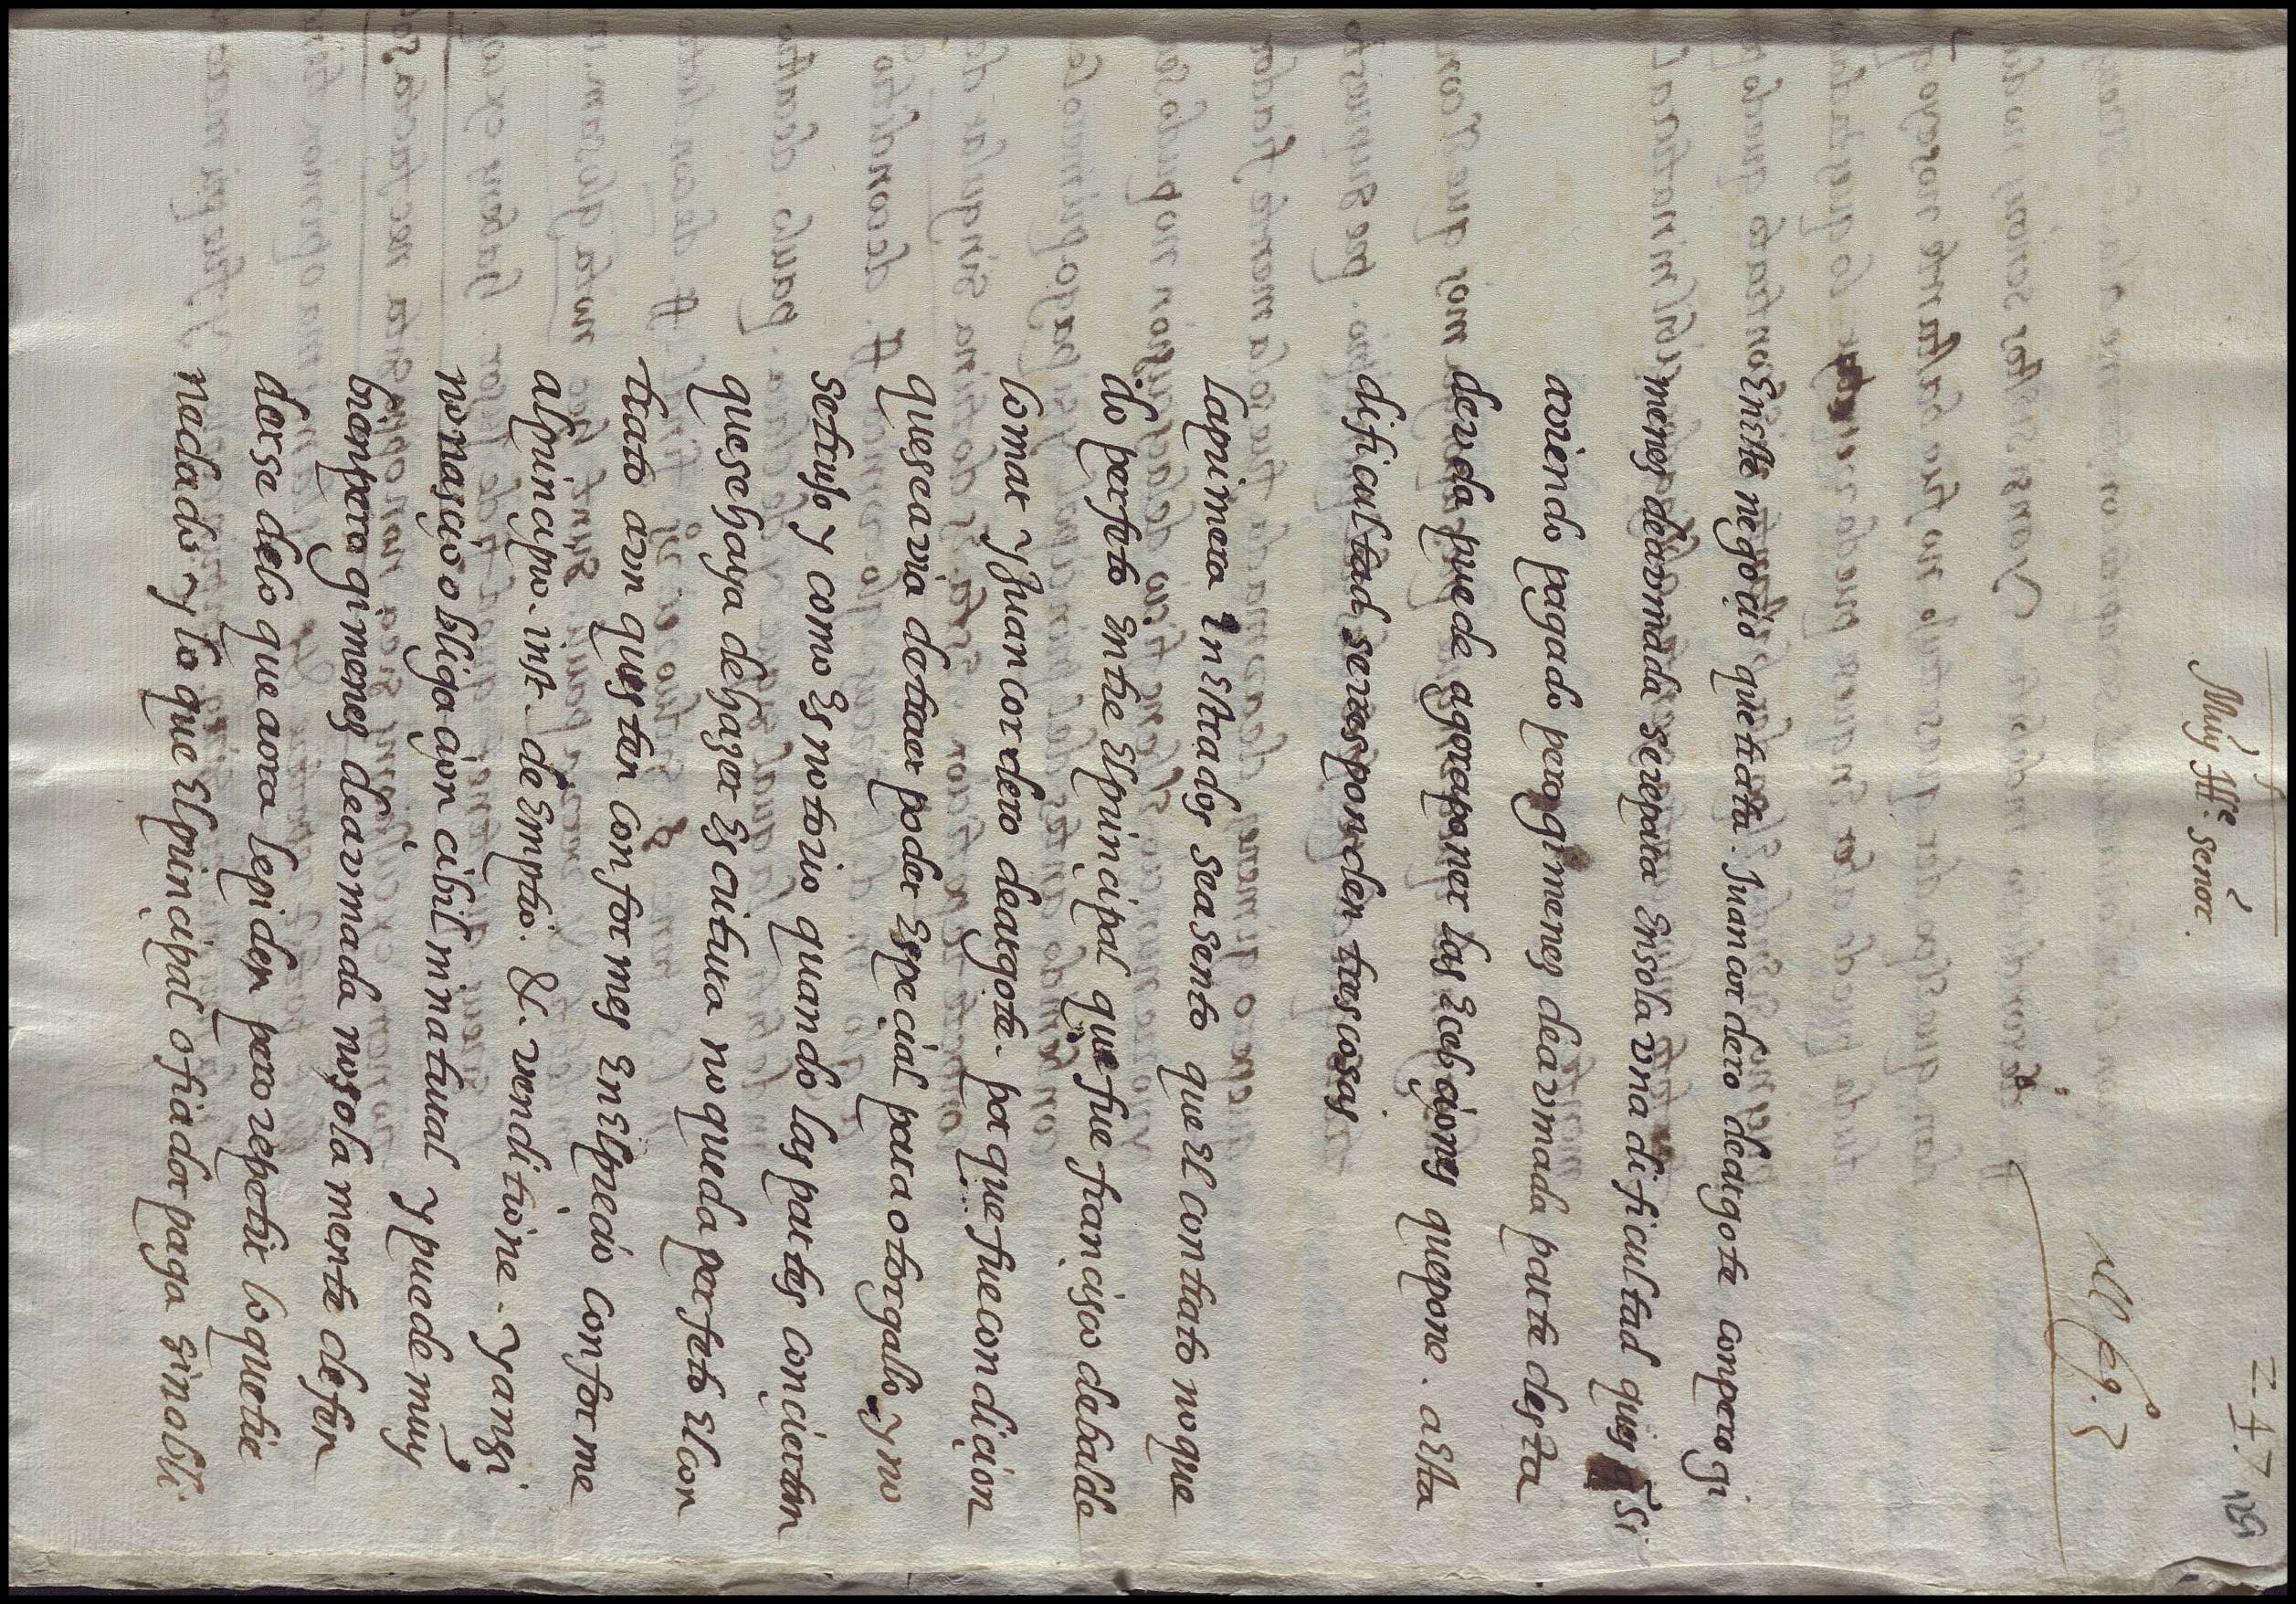 Z-47. 151
Muy Illᵉ. señor.
En este negoçio que trata. Juan cordero de argote con pero gi
menez de aumada se repara en sola vna dificultad ques q̃ si
aviendo pagado pero gimenez de aumada parte desta
devda puede agora poner las ecebçiones que pone. a esta
dificultad se responden tres cosas
la primera in estrados se asento que el contrato no que
do perfeto entre el prinçipal que fue françisco de balde
lomar y Juan cordero de argote. por que fue condiçion
que se avia de traer poder espeçial para otorgallo. y no
se truxo y como es notorio quando las partes conçiertan
que se haya de hazer escritura no queda perfeto el con
trato avn questen conformes en el preçio conforme
al prinçipio. inst. de emptio. &. venditione. y ansi
no naçio obligaçion çibil ni natural y puede muy
bien pero gimenez de avmada no solamente defen
derse de lo que aora le piden pero repetir lo que tie
ne dado y lo que el prinçipal o fiador paga sin obli